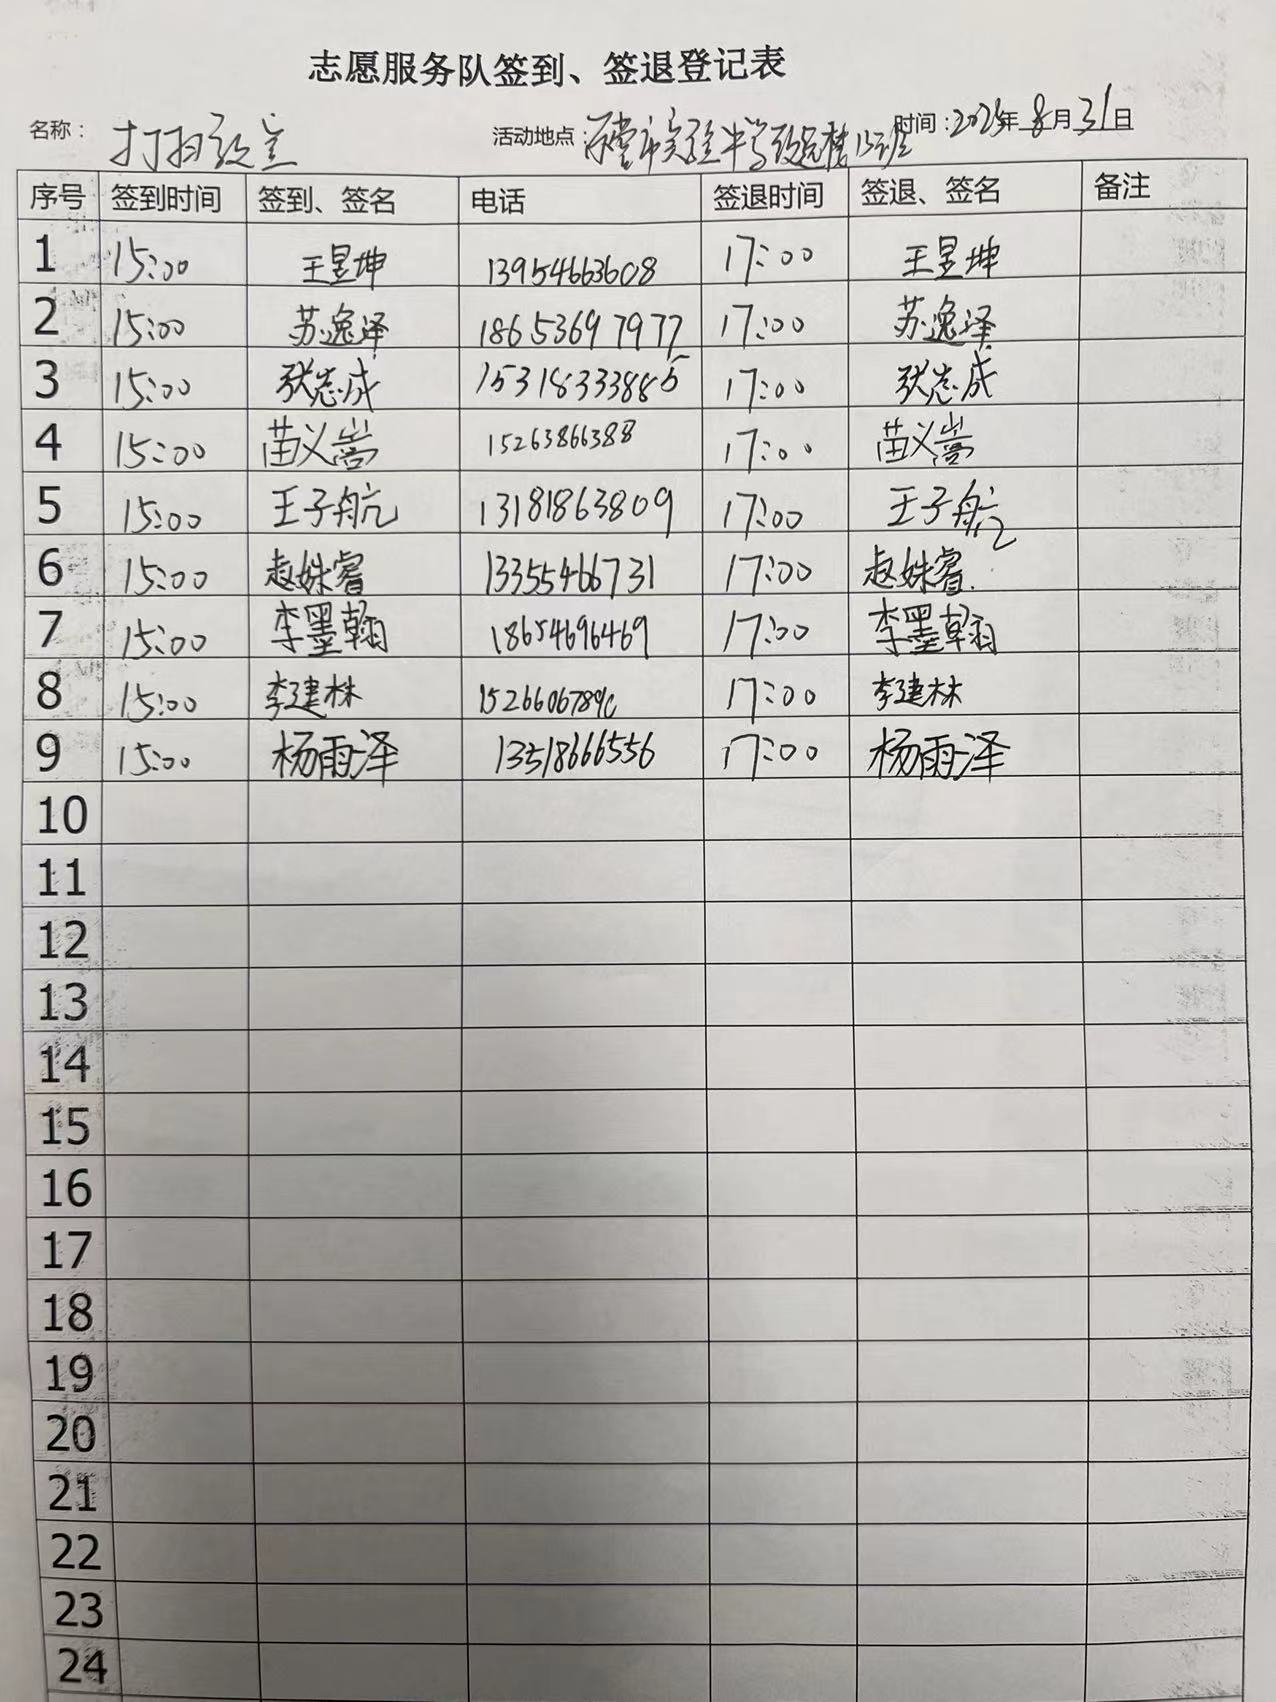 志愿服务队签到、签退登记表
名称：打扫教室 活动地点：市实验中学 时间：2025年8月31日
序号 签到时间 签到、签名 电话 签退时间 签退、签名 备注
1 15:00 王昱坤 13954663608 17:00 王昱坤
2 15:00 苏逸泽 18653697977 17:00 苏逸泽
3 15:00 张志成 15318333885 17:00 张志成
4 15:00 苗义嵩 15263866388 17:00 苗义嵩
5 15:00 王子航 13181863809 17:00 王子航
6 15:00 赵姝睿 13355466731 17:00 赵姝睿
7 15:00 李墨翰 18654696469 17:00 李墨翰
8 15:00 李建林 17:00 李建林
9 15:00 杨雨泽 13518666556 17:00 杨雨泽
10
11
12
13
14
15
16
17
18
19
20
21
22
23
24